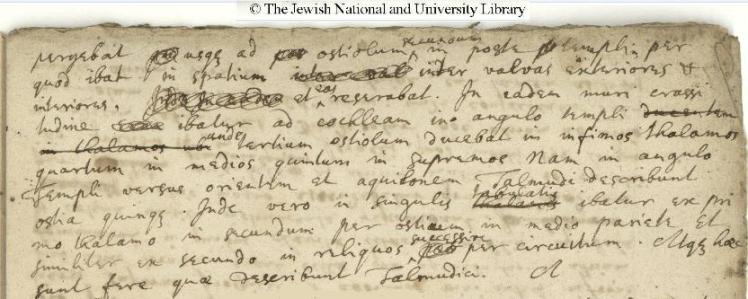 © The Jewish National and University Library
pergebat usqȝ ad ostiolum secundum in poste templi, per
quod ibat in spatium inter valvas exteriores &
interiores. et eas reserabat. In eadem muri crassi
tudine ibatur ad cochleam in angulo templi ducentem
in thalamos ubi unde tertium ostiolum ducebat in infimos thalamos
quartum in medios quintum in supremos Nam in angulo
Templi versus orientem et aquilonem Talmudici describunt
ostia quinqȝ. Inde vero in singulis tabulatis thalamis ibatur ex pri
mo thalamo in secundum per ostium in medio pariete Et
similiter ex secundo in reliquos successive per circuitum. Atqȝ hæc
sunt fere quæ describunt Talmudici.